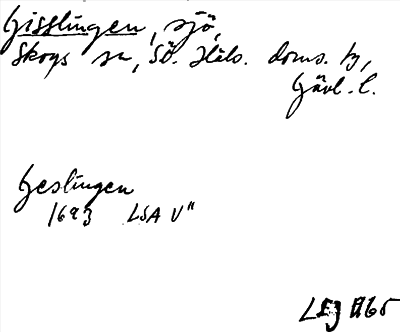 Gisslingen, sjö,
Skogs sn, Sö. Häls. doms. tg,
Gävl. l.
Geslingen
1693 LSA V"
LEJ 1965